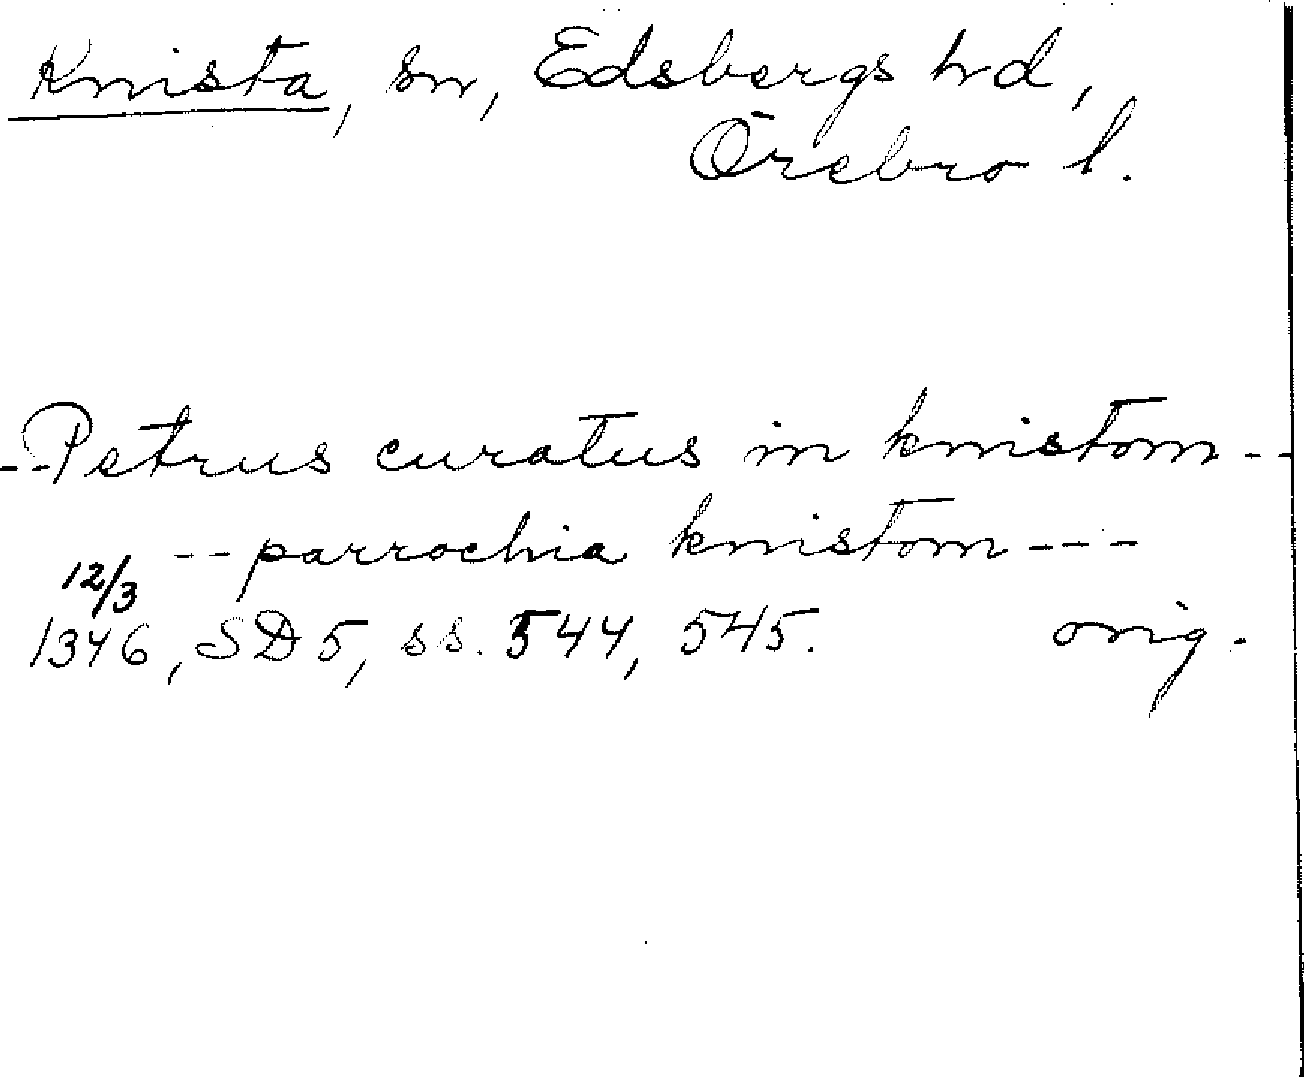 Knista, sn, Edsbergs hd,
Örebro l.
--Petrus curatus in knistom--
--parrochia knistom---
12/3
1346, SD 5, ss. 544, 545. orig.